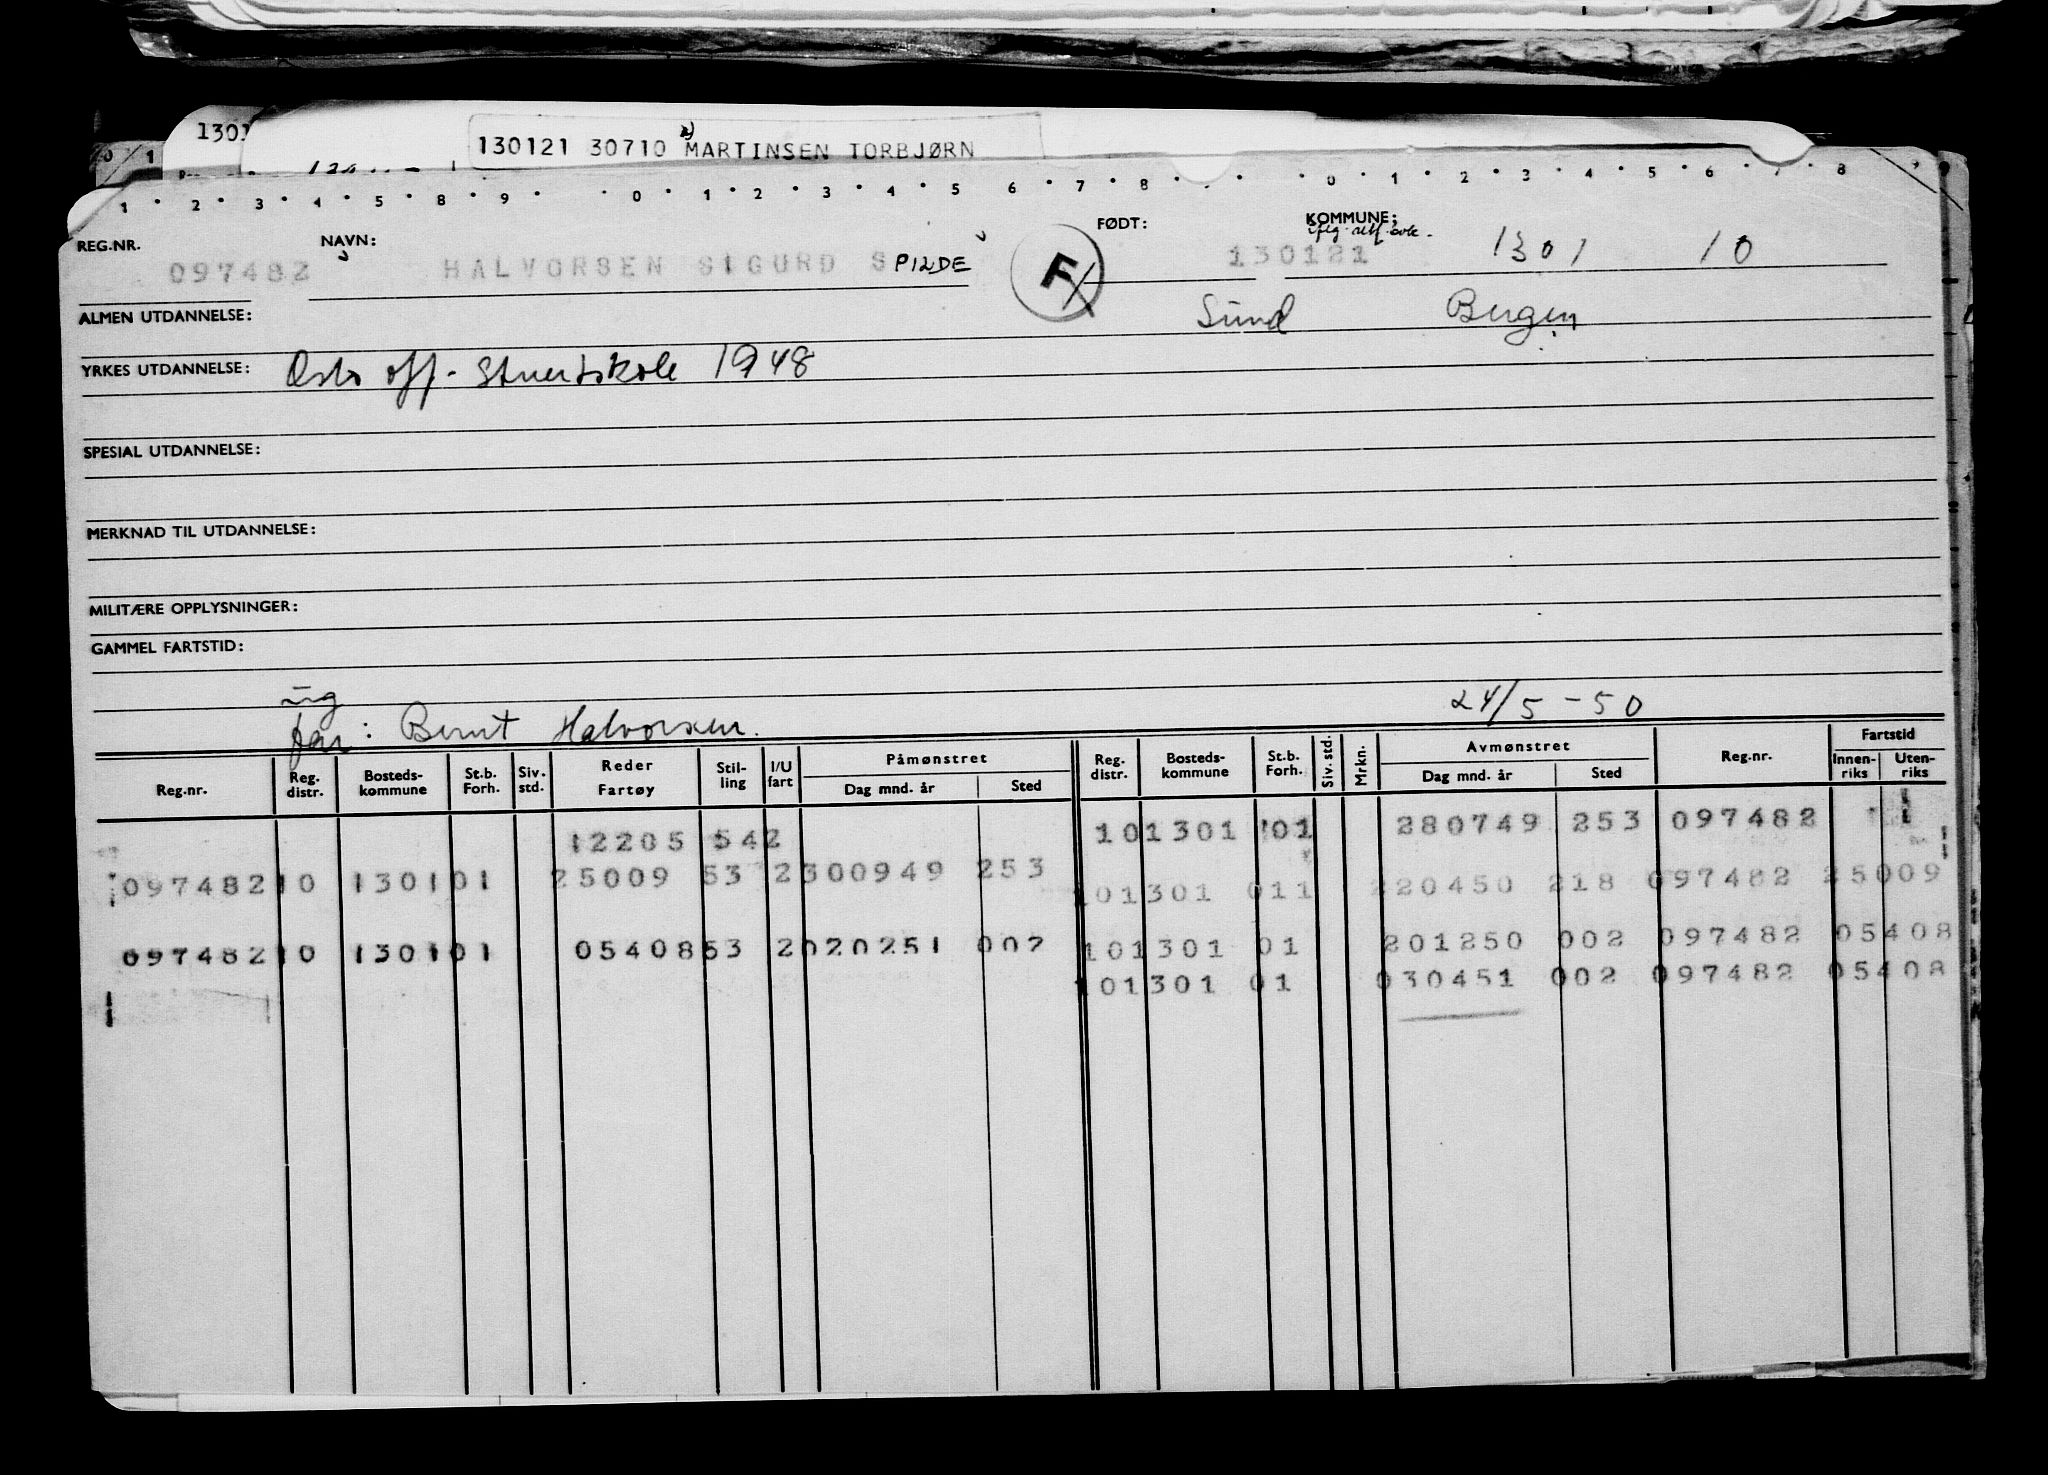 130121 30710 MARTINSEN TORBJØRN
1 · 2 · 3 · 4 · 5 · 8 · 9 · 0 · 1 2 · 3 · 4 · 5 6 · 7 · 8 · · 0 · 1 · 2 · 3 · 4 · 5 · 6 · 7 · 8
REG.NR. NAVN: FØDT: KOMMUNE:
097482 HALVORSEN SIGURD S PILDE F 130121 1301 10
ALMEN UTDANNELSE: Sund Bergen
YRKES UTDANNELSE: Oslo off. Stuertskole 1948
SPESIAL UTDANNELSE:
MERKNAD TIL UTDANNELSE:
MILITÆRE OPPLYSNINGER:
GAMMEL FARTSTID:
ug 24/5 - 50
far: Bernt Halvorsen.
Reg.nr. Reg. distr. Bosteds-kommune St.b. Forh. Siv. std. Reder Fartøy Stil-ling I/U fart Påmønstret Dag mnd. år Sted Reg. distr. Bosteds-kommune St.b. Forh. Siv. std. Mrkn. Avmønstret Dag mnd. år Sted Reg.nr. Fartstid Innen-riks Uten-riks
12205 542 101301 01 280749 253 097482
097482 10 1301 01 25009 53 2 300949 253 101301 011 220450 218 097482 25009
097482 10 1301 01 05408 53 2 020251 002 101301 01 201250 002 097482 05408
101301 01 030451 002 097482 05408